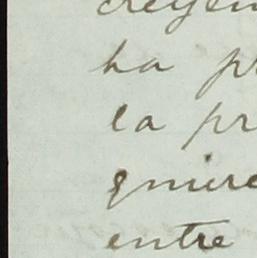 creyen
ha pr
la pr
quiere
entre